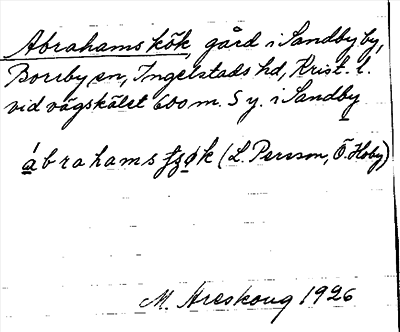 Abrahams kök, gård i Sandby by,
Borrby sn, Ingelstads hd, Krist. l.
vid vägskälet 600 m. S y. i Sandby
ábrahams k (L. Persson, Ö. Hoby)
M. Areskoug 1926